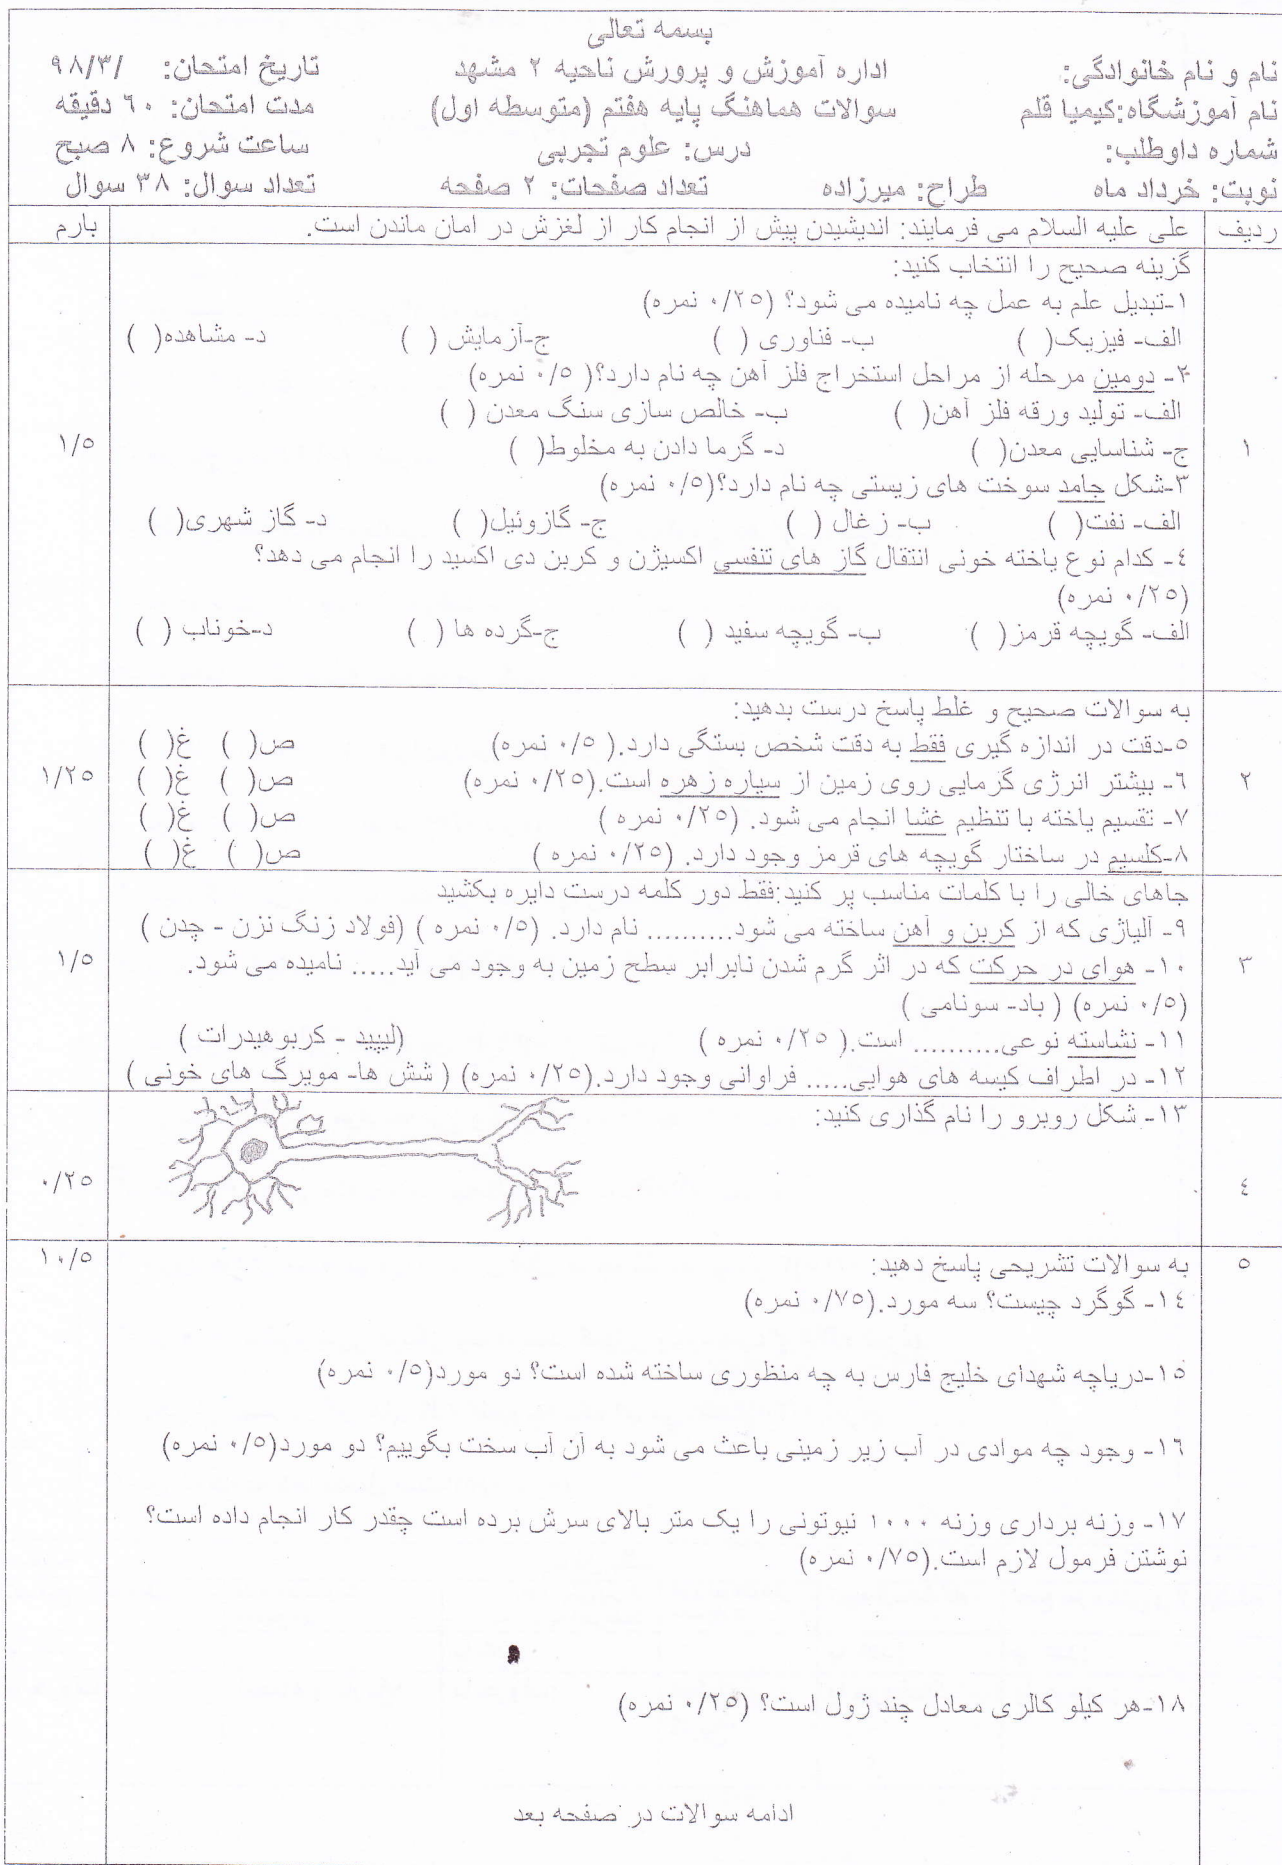 بسمه تعالی
نام و نام خانوادگی: اداره آموزش و پرورش ناحیه ۲ مشهد تاریخ امتحان: /۹۸/۳
نام آموزشگاه:کیمیا قلم سوالات هماهنگ پایه هفتم (متوسطه اول) مدت امتحان: ۶۰ دقیقه
شماره داوطلب: درس: علوم تجربی ساعت شروع: ۸ صبح
نوبت: خرداد ماه طراح: میرزاده تعداد صفحات: ۲ صفحه تعداد سوال: ۳۸ سوال
ردیف علی علیه السلام می فرمایند: اندیشیدن پیش از انجام کار از لغزش در امان ماندن است. بارم
گزینه صحیح را انتخاب کنید:
۱-تبدیل علم به عمل چه نامیده می شود؟ (۰/۲۵ نمره)
الف- فیزیک( ) ب- فناوری ( ) ج-آزمایش ( ) د- مشاهده( )
۲- دومین مرحله از مراحل استخراج فلز آهن چه نام دارد؟( ۰/۵ نمره)
الف- تولید ورقه فلز آهن( ) ب- خالص سازی سنگ معدن ( )
۱ ج- شناسایی معدن( ) د- گرما دادن به مخلوط( ) ۱/۵
۳-شکل جامد سوخت های زیستی چه نام دارد؟(۰/۵ نمره)
الف- نفت( ) ب- زغال ( ) ج- گازوئیل( ) د- گاز شهری( )
۴- کدام نوع یاخته خونی انتقال گاز های تنفسی اکسیژن و کربن دی اکسید را انجام می دهد؟
(۰/۲۵ نمره)
الف- گویچه قرمز( ) ب- گویچه سفید ( ) ج-گرده ها ( ) د-خوناب ( )
به سوالات صحیح و غلط پاسخ درست بدهید:
۵-دقت در اندازه گیری فقط به دقت شخص بستگی دارد.( ۰/۵ نمره) ص( ) غ( )
۲ ۶- بیشتر انرژی گرمایی روی زمین از سیاره زهره است.(۰/۲۵ نمره) ص( ) غ( ) ۱/۲۵
۷- تقسیم یاخته با تنظیم غشا انجام می شود. (۰/۲۵ نمره ) ص( ) غ( )
۸-کلسیم در ساختار گویچه های قرمز وجود دارد. (۰/۲۵ نمره ) ص( ) غ( )
جاهای خالی را با کلمات مناسب پر کنید:فقط دور کلمه درست دایره بکشید
۹- آلیاژی که از کربن و آهن ساخته می شود.......... نام دارد. (۰/۵ نمره ) (فولاد زنگ نزن - چدن )
۳ ۱۰- هوای در حرکت که در اثر گرم شدن نابرابر سطح زمین به وجود می آید..... نامیده می شود. ۱/۵
(۰/۵ نمره) ( باد- سونامی )
۱۱- نشاسته نوعی.......... است.( ۰/۲۵ نمره ) (لیپید - کربوهیدرات )
۱۲- در اطراف کیسه های هوایی..... فراوانی وجود دارد.(۰/۲۵ نمره) ( شش ها- مویرگ های خونی )
۱۳- شکل روبرو را نام گذاری کنید:
۴ ۰/۲۵
۵ به سوالات تشریحی پاسخ دهید: ۱۰/۵
۱۴- گوگرد چیست؟ سه مورد.(۰/۷۵ نمره)
۱۵-دریاچه شهدای خلیج فارس به چه منظوری ساخته شده است؟ دو مورد(۰/۵ نمره)
۱۶- وجود چه موادی در آب زیر زمینی باعث می شود به آن آب سخت بگوییم؟ دو مورد(۰/۵ نمره)
۱۷- وزنه برداری وزنه ۱۰۰۰ نیوتونی را یک متر بالای سرش برده است چقدر کار انجام داده است؟
نوشتن فرمول لازم است.(۰/۷۵ نمره)
۱۸-هر کیلو کالری معادل چند ژول است؟ (۰/۲۵ نمره)
ادامه سوالات در صفحه بعد